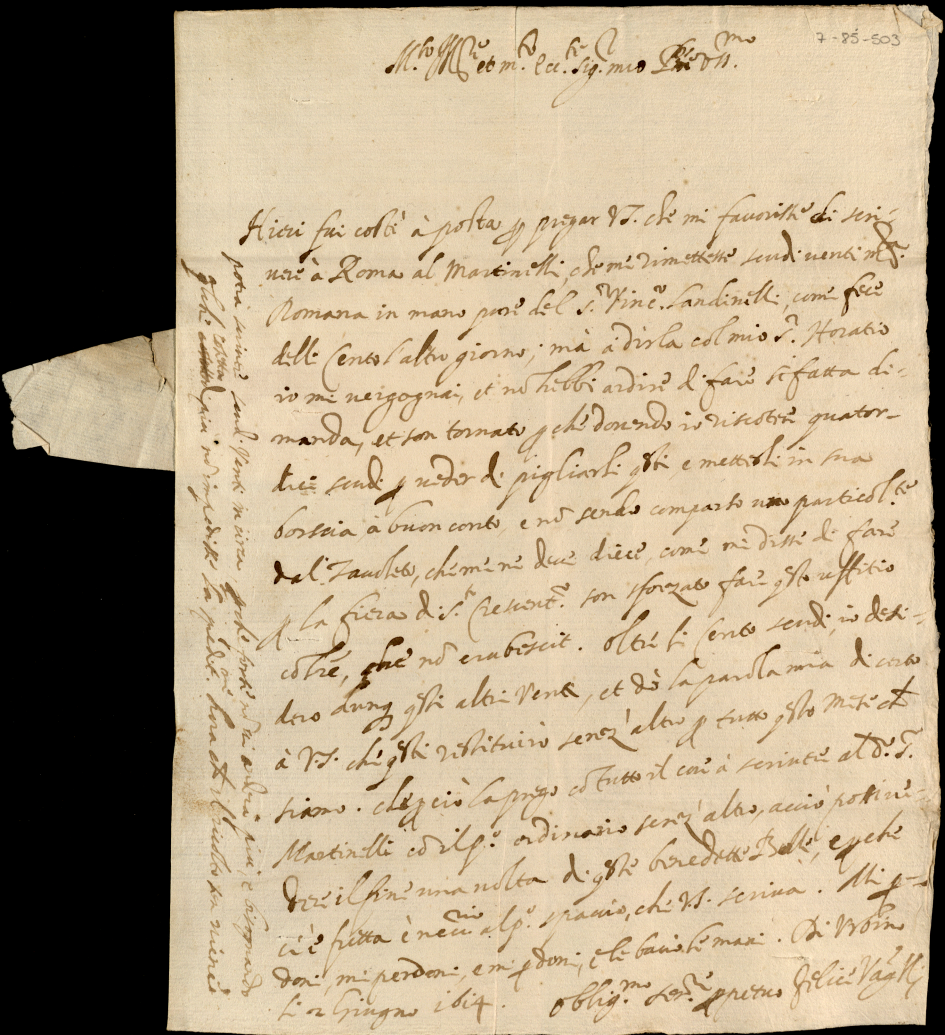 7-85-503
M.to Ill.re et m.to Ecc.te Sig.r mio P.rne oss.mo
Hieri fui costì à posta p pregar VS. che mi favorisse di scri-
vere à Roma al Martinelli, che me rimettesse scudi venti m.ta
Romana in mano pure del S.r Vinc.o Landinelli, come fece
delli Cento l'altro giorno; mà a dirla col mio S.r Horatio
io mi vergognai, et nõ hebbi ardire di fare sì fatta di-
manda, et son tornato pche dovendo io riscotere quator-
dici scudi p veder di pigliarli qsti e metterli in sua
borscia à buon conto, e nõ sendo comparso uno particol.te
dal Tavoleto, che me ne deve diece, come mi disse di fare
p la fiera di S.t Crescent.o son sforzato fare qsto uffitio
cõ lre, che nõ erubescit. Oltre li Cento scudi, io desi-
dero dunq qsti altri Venti, et dò la parola mia di certo
à VS. che qsti restituirò senz'altro p tutto qsto mese ch
siamo. che pciò la prego cõ tutto il core à scrivere al d.o S.r
Martinelli cõ il p.o ordinario senz'altro, acciò possi ve-
dere il fine una volta di qste benedette Bolle, e pche
ci è fretta è nec.rio al p.o spaccio, che VS. scriva. Mi p-
doni, mi perdoni, e mi pdoni, e le bacio le mani. Di Urbino
li 2 Giugno 1614.
Oblig.mo ser.re ppetuo Felice
potrà scrivere scudi venti in circa pche forsi nõ vi andrà più, e bisognando
qlche più nõ impedisse la